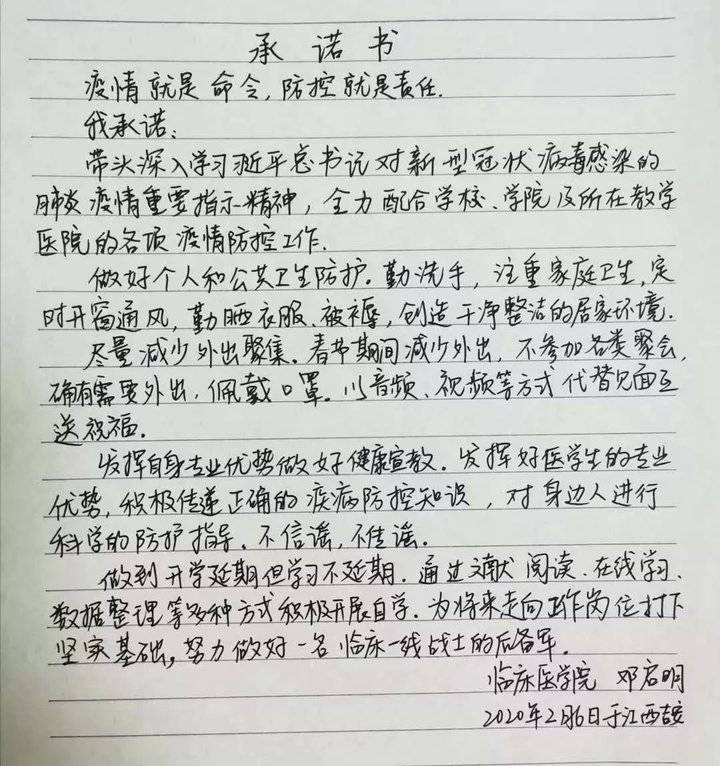 承诺书
疫情就是命令,防控就是责任.
我承诺:
带头深入学习习近平总书记对新型冠状病毒感染的
肺炎疫情重要指示精神,全力配合学校、学院及所在教学
医院的各项疫情防控工作.
做好个人和公共卫生防护.勤洗手,注重家庭卫生,定
时开窗通风,勤晒衣服、被褥,创造干净整洁的居家环境.
尽量减少外出聚集.春节期间减少外出,不参加各类聚会,
确有需要外出,佩戴口罩.以音频、视频等方式代替见面互
送祝福.
发挥自身专业优势做好健康宣教.发挥好医学生的专业
优势,积极传递正确的疾病防控知识,对身边人进行
科学的防护指导.不信谣,不传谣.
做到开学延期但学习不延期.通过文献阅读、在线学习、
数据整理等多种方式积极开展自学.为将来走向工作岗位打下
坚实基础,努力做好一名临床一线战士的后备军.
临床医学院 邓启明
2020年2月6日于江西吉安